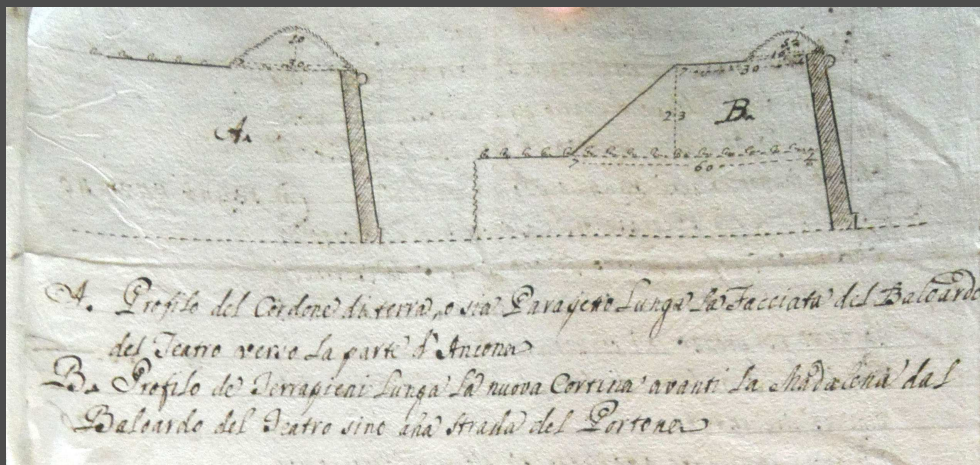 20
30
A.
5
10
30
23
B.
60
A. Profilo del Cordone di terra, o sia Parapeto Lungo La Facciata del Baloardo
del Teatro verso La parte d'Ancona
B. Profilo de Terrapieni Lungo La nuova Cortina avanti La Madalena dal
Baloardo del Teatro sino alla Strada del Portone